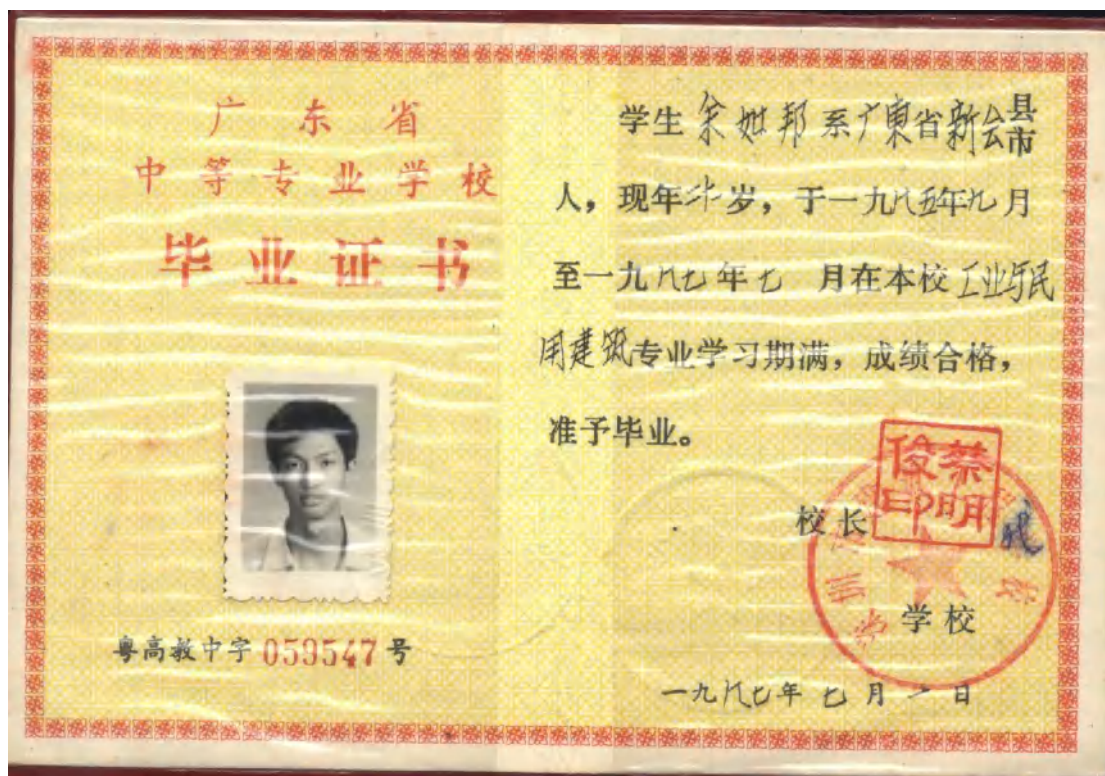 广东省
中等专业学校
毕业证书
粤高教中字 059547 号
学生 余 邦 系广東省新会县市
人，现年 岁，于一九八五年九月
至一九八七年七 月在本校工业与民
用建筑专业学习期满，成绩合格，
准予毕业。
校长
蔡明俊印
学校
一九八七年 七 月 一 日